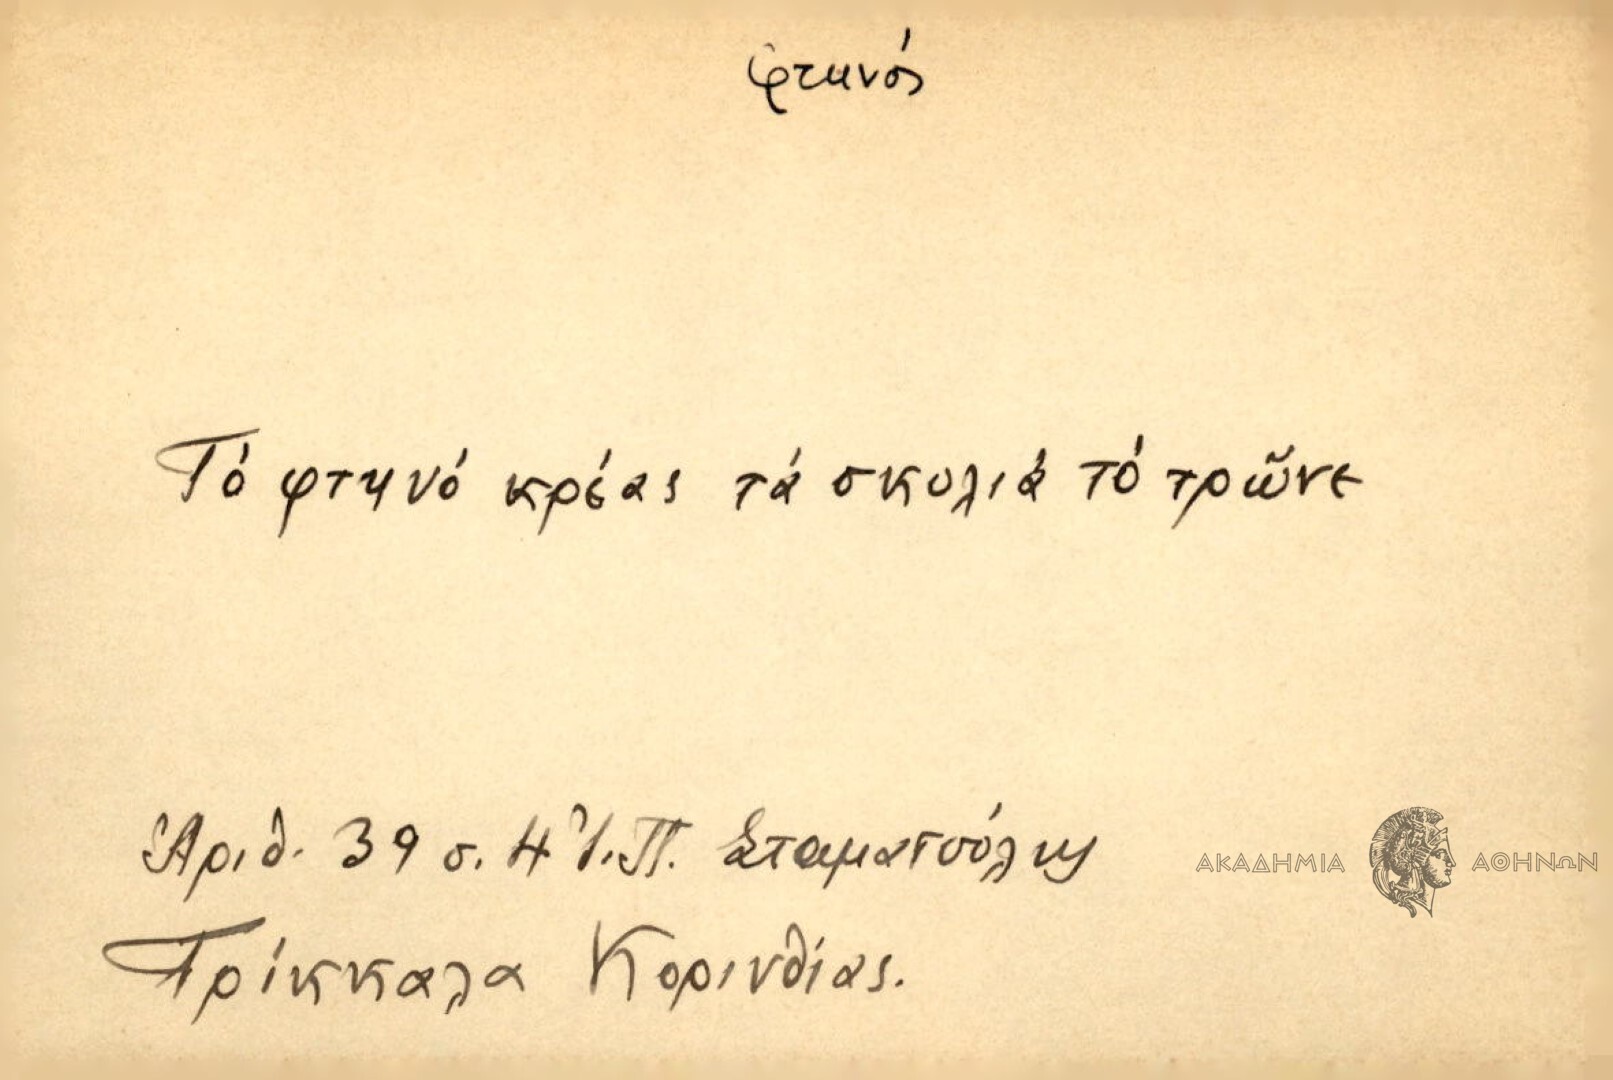 φτηνός
Τό φτηνό κρέας τά σκυλιά τό τρῶνε
Ἀριθ. 39 σ. 4 Ἰ. Π. Σταματούλης
ΑΚΑΔΗΜΙΑ ΑΘΗΝΩΝ
Τρίκκαλα Κορινθίας.